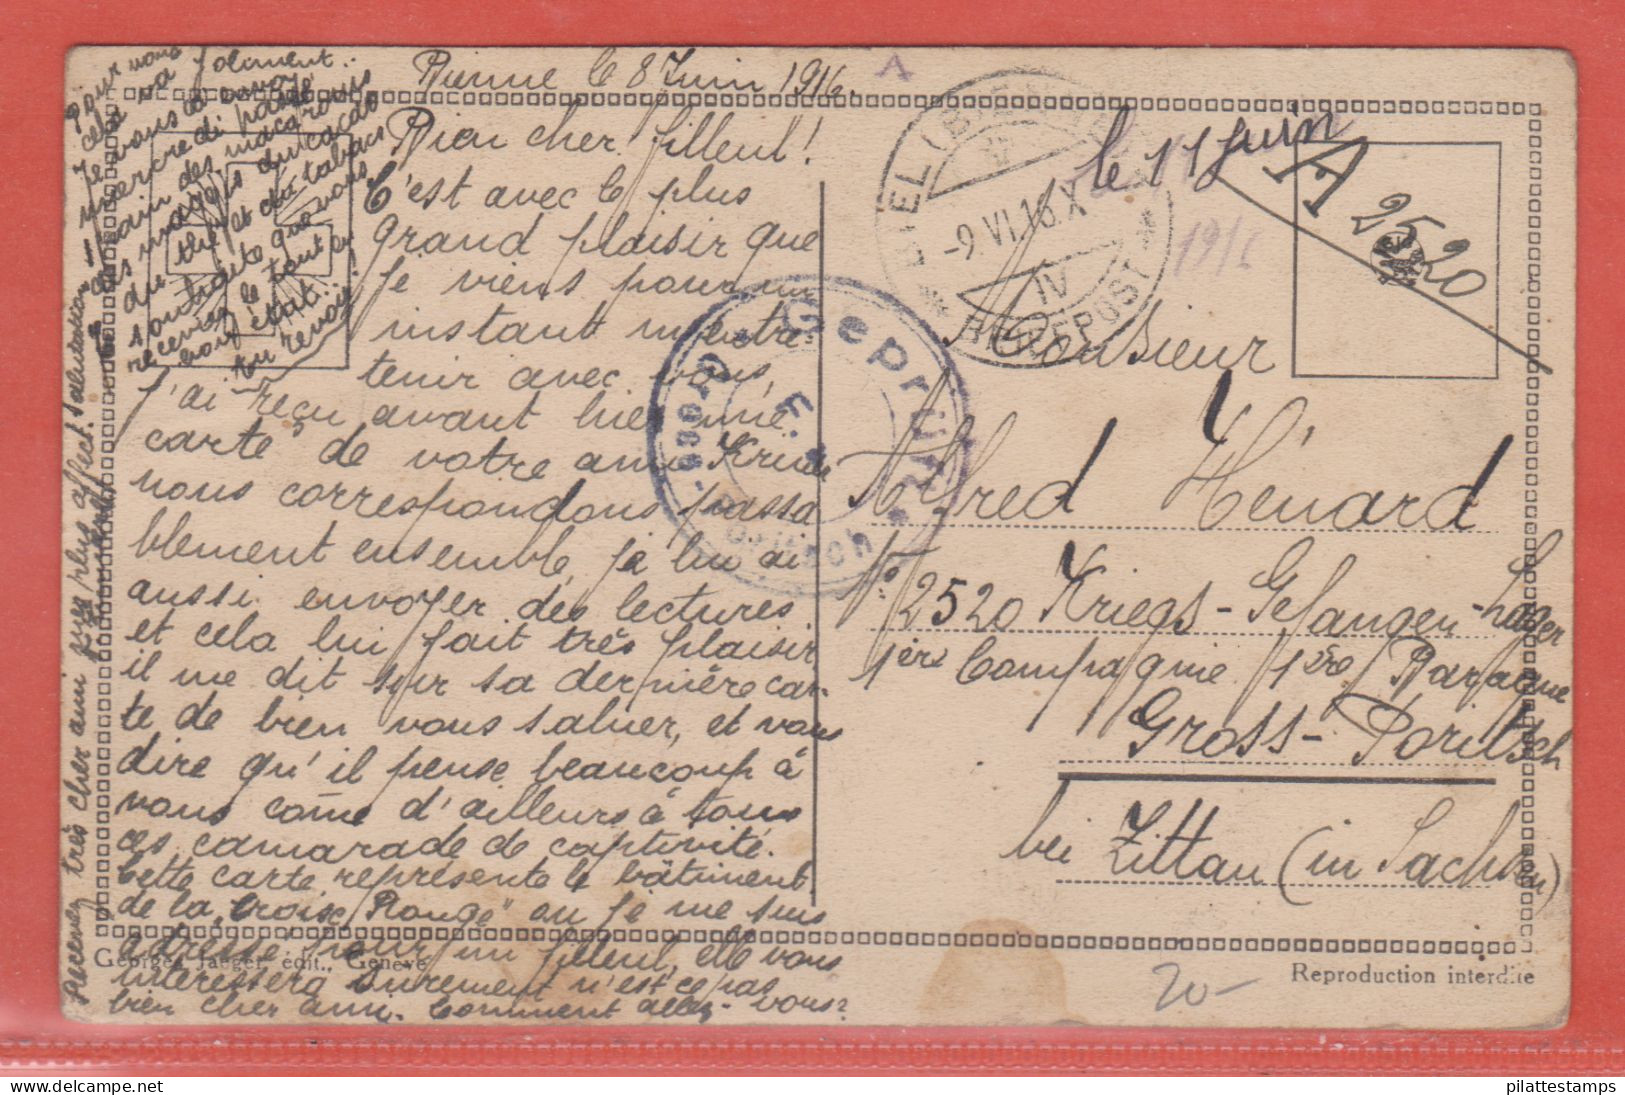 Bienne le 8 Juin 1916.
Bien cher filleul!
C'est avec le plus
grand plaisir que
je viens pour un
instant m'entre-
tenir avec vous,
j'ai reçu avant hier une
carte de votre ami
nous correspondons passa
blement ensemble, je lui ai
aussi envoyer des lectures
et cela lui fait très plaisir,
il me dit sur sa dernière car-
te de bien vous saluer, et vous
dire qu'il pense beaucoup à
vous come d'ailleurs à tous
ces camarade de captivité.
Cette carte représente le bâtiment
de la "Croise Rouge" ou je me suis
adressé pour un filleul, elle vous
interessera surement n'est ce pas
bien cher ami. Comment allez-vous?
Pour vous
cela va
Je vous ai envoyé
mercredi passé
pain des macarons
des maggis du cacao
du thé et du tabacs
souhaite que vous
receviez le tout en
bon état.
Recevez très cher ami mes plus affect. salutations
BIEL
-9.VI.16.X
IV
BRIEFPOST
Geprüft
F. a.
Gross-Poritsch
le 11 juin
1916
A 2520
Monsieur
Alfred Hénard
No. 2520 Kriegs-Gefangen-Lager
1ère Compagnie 1ère Baraque
Gross-Poritsch
bei Zittau (in Sachsen)
Georges Jaeger, édit., Genève
20-
Reproduction interdite
pilattestamps